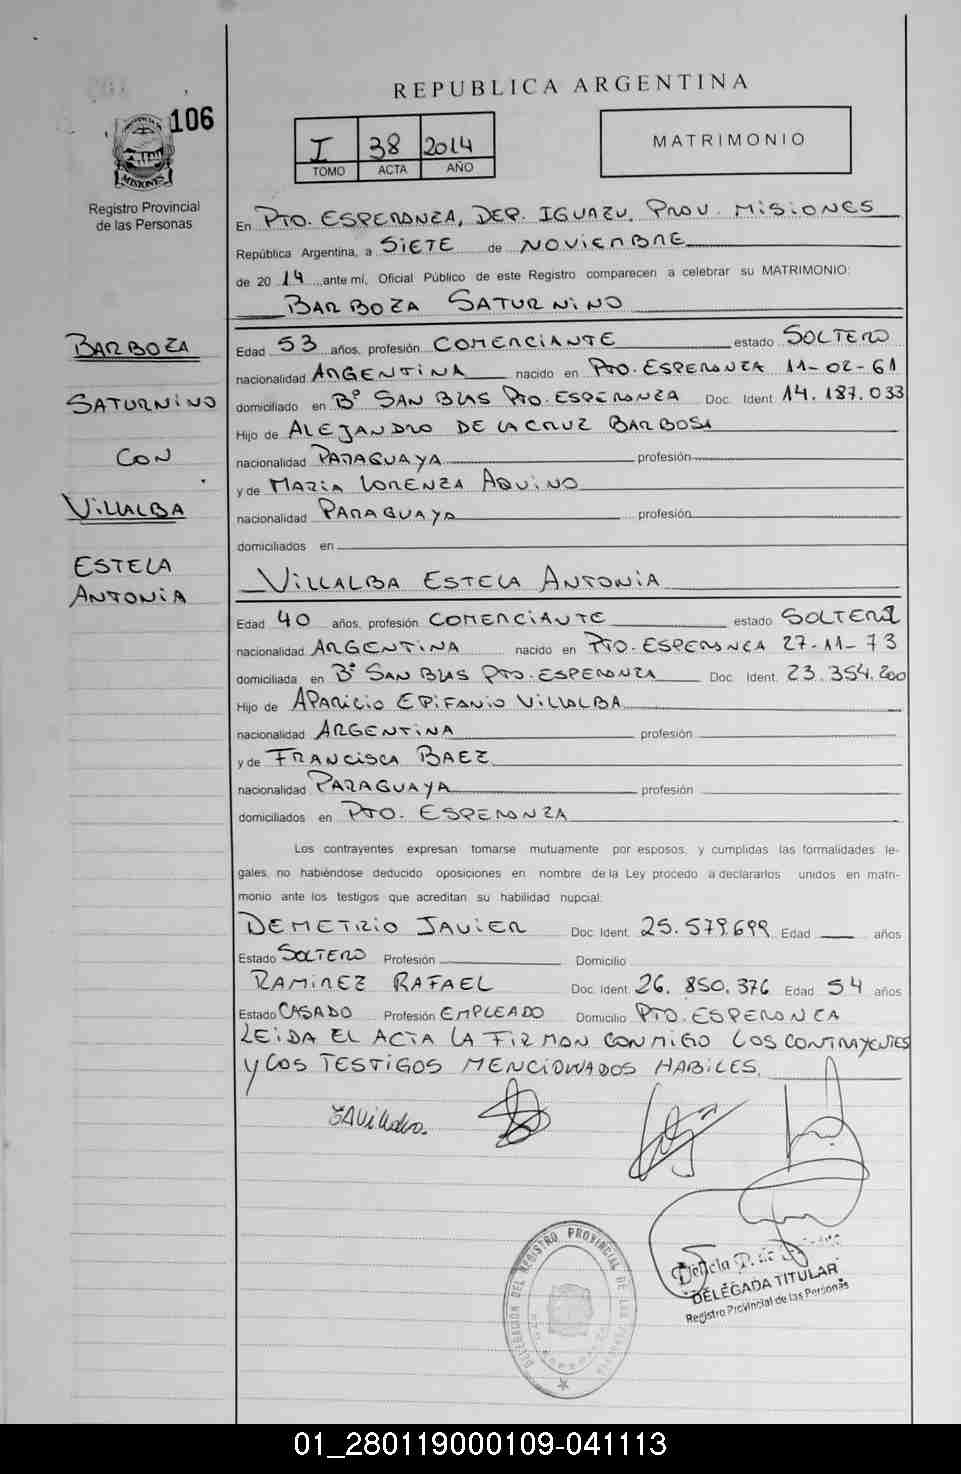 REPUBLICA ARGENTINA
106
PROVINCIA DE
MISIONES
Registro Provincial
de las Personas
I 38 2014
TOMO ACTA AÑO
MATRIMONIO
En PTO. ESPERANZA, DEP. IGUAZU, PROV. MISIONES
República Argentina, a SIETE de NOVIEMBRE
de 2014 ante mí, Oficial Público de este Registro comparecen a celebrar su MATRIMONIO:
BARBOZA SATURNINO
BARBOZA
SATURNINO
CON
VILLALBA
ESTELA
ANTONIA
Edad 53 años, profesión COMERCIANTE estado SOLTERO
nacionalidad ARGENTINA nacido en PTO. ESPERANZA 11-02-61
domiciliado en Bº SAN BLAS PTO. ESPERANZA Doc. Ident. 14.187.033
Hijo de ALEJANDRO DE LA CRUZ BARBOSA
nacionalidad PARAGUAYA profesión
y de MARIA LORENZA AQUINO
nacionalidad PARAGUAYA profesión
domiciliados en
VILLALBA ESTELA ANTONIA
Edad 40 años, profesión COMERCIANTE estado SOLTERA
nacionalidad ARGENTINA nacido en PTO. ESPERANZA 27-11-73
domiciliada en Bº SAN BLAS PTO. ESPERANZA Doc. Ident. 23.354.200
Hijo de APARICIO EPIFANIO VILLALBA
nacionalidad ARGENTINA profesión
y de FRANCISCA BAEZ
nacionalidad PARAGUAYA profesión
domiciliados en PTO. ESPERANZA
Los contrayentes expresan tomarse mutuamente por esposos, y cumplidas las formalidades le-
gales, no habiéndose deducido oposiciones en nombre de la Ley procedo a declararlos unidos en matri-
monio ante los testigos que acreditan su habilidad nupcial.
DEMETRIO JAVIER Doc. Ident. 25.579.699 Edad años
Estado SOLTERO Profesión Domicilio
RAMIREZ RAFAEL Doc. Ident. 26.850.376 Edad 54 años
Estado CASADO Profesión EMPLEADO Domicilio PTO. ESPERANZA
LEIDA EL ACTA LA FIRMAN CONMIGO LOS CONTRAYENTES
Y LOS TESTIGOS MENCIONADOS HABILES.
DELEGACION DEL REGISTRO PROVINCIAL DE LAS PERSONAS
DELEGADA TITULAR
Registro Provincial de las Personas
01_280119000109-041113